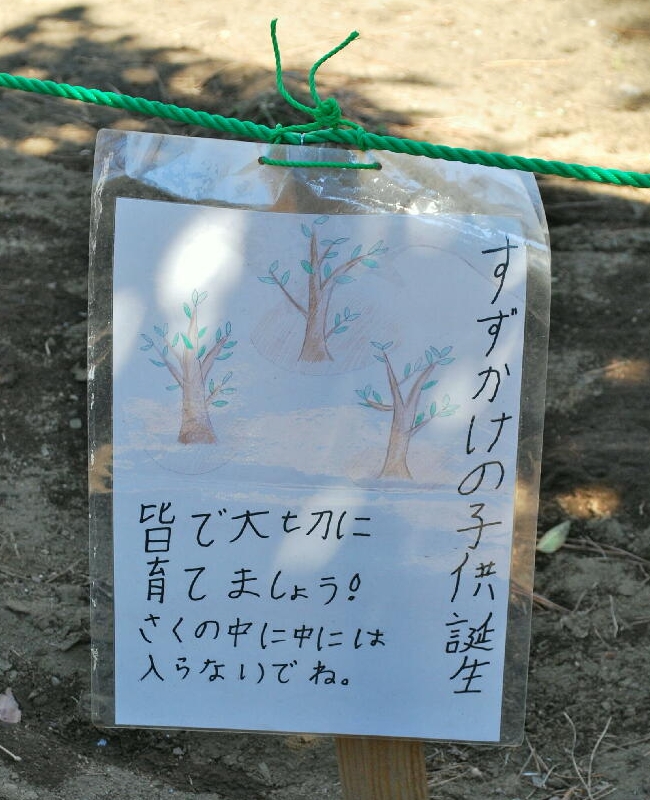 すずかけの子供誕生
皆で大切に
育てましょう!
さくの中に中には
入らないでね。